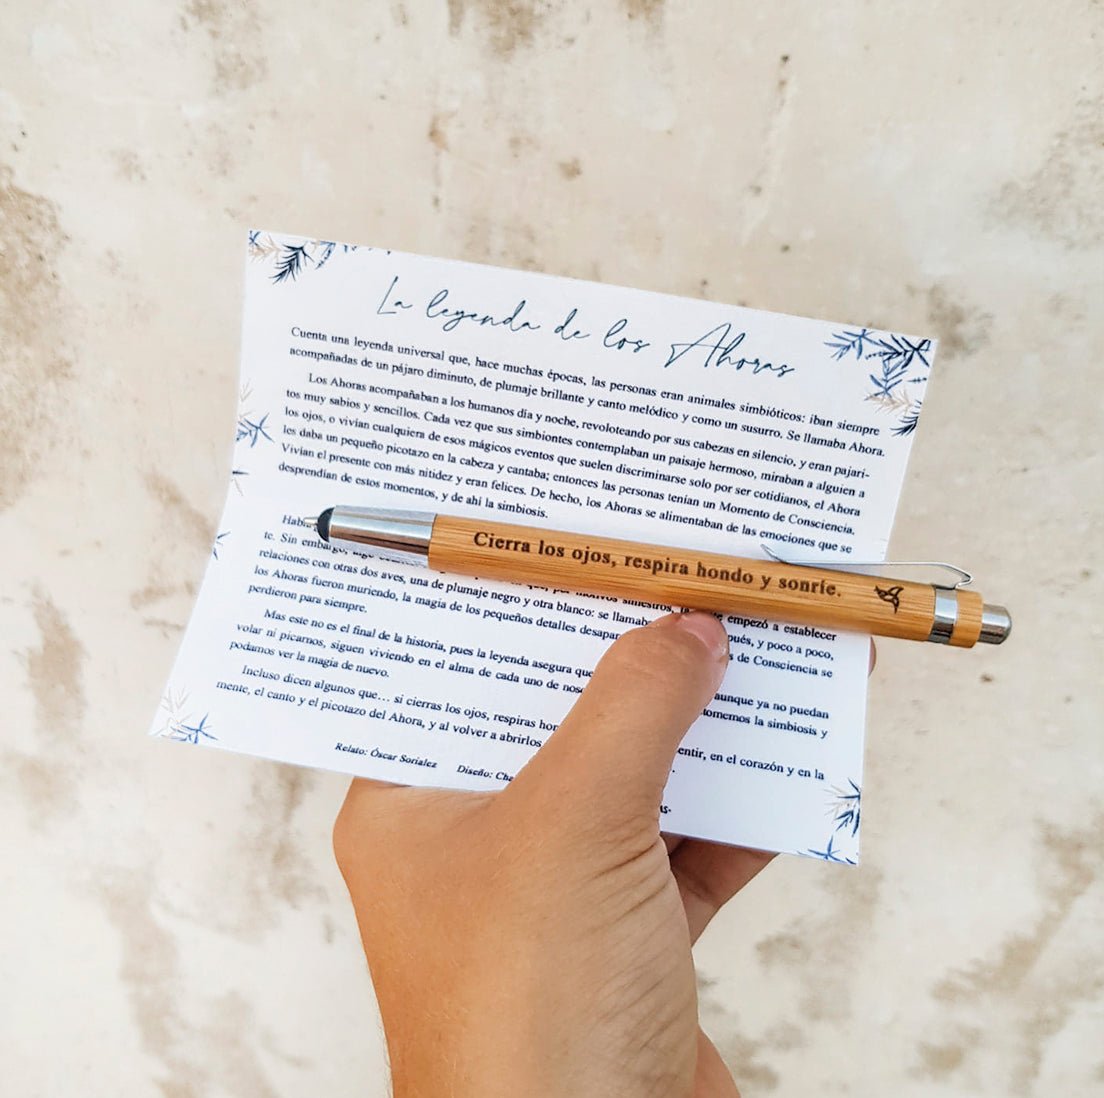 La leyenda de los Ahoras
Cuenta una leyenda universal que, hace muchas épocas, las personas eran animales simbióticos: iban siempre
acompañadas de un pájaro diminuto, de plumaje brillante y canto melódico y como un susurro. Se llamaba Ahora.
Los Ahoras acompañaban a los humanos día y noche, revoloteando por sus cabezas en silencio, y eran pajari-
tos muy sabios y sencillos. Cada vez que sus simbiontes contemplaban un paisaje hermoso, miraban a alguien a
los ojos, o vivían cualquiera de esos mágicos eventos que suelen discriminarse solo por ser cotidianos, el Ahora
les daba un pequeño picotazo en la cabeza y cantaba; entonces las personas tenían un Momento de Consciencia.
Vivían el presente con más nitidez y eran felices. De hecho, los Ahoras se alimentaban de las emociones que se
desprendían de estos momentos, y de ahí la simbiosis.
Cierra los ojos, respira hondo y sonríe.
te. Sin embargo, empezó a establecer
relaciones con otras dos aves, una de plumaje negro y otra blanco: se
los Ahoras fueron muriendo, la magia de los pequeños detalles y poco a poco,
perdieron para siempre. de Consciencia se
Mas este no es el final de la historia, pues la leyenda asegura que aunque ya no puedan
volar ni picarnos, siguen viviendo en el alma de cada uno de la simbiosis y
podamos ver la magia de nuevo.
Incluso dicen algunos que… si cierras los ojos, respiras en el corazón y en la
mente, el canto y el picotazo del Ahora, y al volver a abrirlos
Relato: Óscar Sorialez Diseño: